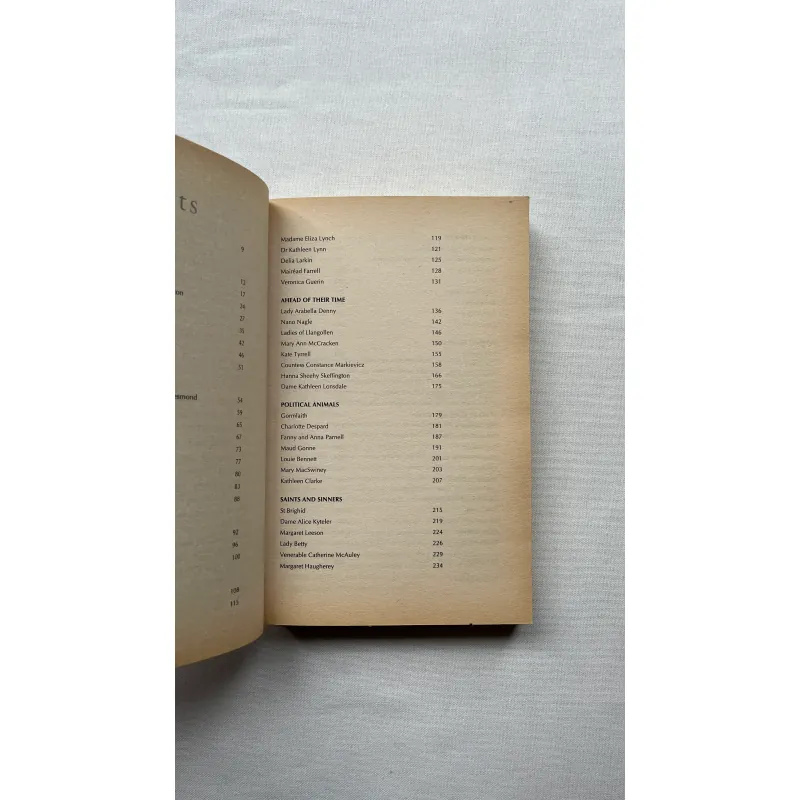 ts
9
13
17
on
24
27
35
42
46
51
mmond
54
59
65
67
73
77
80
83
88
92
96
100
108
113
Madame Eliza Lynch 119
Dr Kathleen Lynn 121
Delia Larkin 125
Mairéad Farrell 128
Veronica Guerin 131
AHEAD OF THEIR TIME
Lady Arabella Denny 136
Nano Nagle 142
Ladies of Llangollen 146
Mary Ann McCracken 150
Kate Tyrrell 155
Countess Constance Markievicz 158
Hanna Sheehy Skeffington 166
Dame Kathleen Lonsdale 175
POLITICAL ANIMALS
Gormlaith 179
Charlotte Despard 181
Fanny and Anna Parnell 187
Maud Gonne 191
Louie Bennett 201
Mary MacSwiney 203
Kathleen Clarke 207
SAINTS AND SINNERS
St Brighid 215
Dame Alice Kyteler 219
Margaret Leeson 224
Lady Betty 226
Venerable Catherine McAuley 229
Margaret Haugherey 234